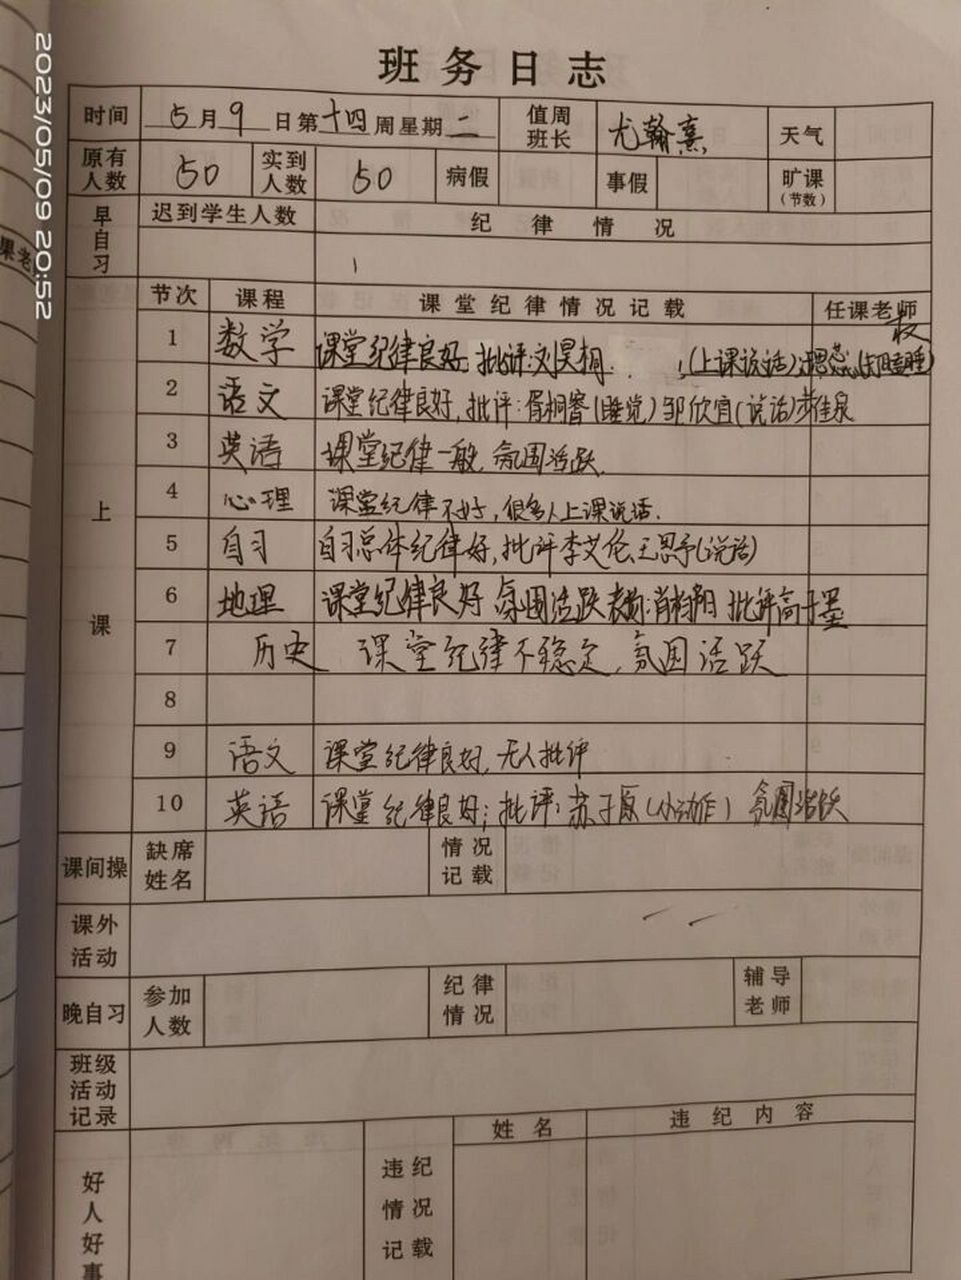 2023/05/09 20:52
果老
班务日志
时间 5月9日第十四周星期二 值周班长 尤翰熹 天气
原有人数 50 实到人数 50 病假 事假 旷课(节数)
早自习 迟到学生人数 纪律情况
上课 节次 课程 课堂纪律情况记载 任课老师
1 数学 课堂纪律良好 批评:刘昊桐 (上课说话)
2 语文 课堂纪律良好,批评: (睡觉)邹欣宜(说话)
3 英语 课堂纪律一般,氛围活跃.
4 心理 课堂纪律不好,很多人上课说话.
5 自习 自习总体纪律好,批评李艾伦,王思予(说话)
6 地理 课堂纪律良好 氛围活跃 表扬: 批评高子墨
7 历史 课堂纪律不稳定,氛围活跃
8
9 语文 课堂纪律良好,无人批评
10 英语 课堂纪律良好;批评:苏子原(小动作) 氛围活跃
课间操 缺席姓名 情况记载
课外活动
晚自习 参加人数 纪律情况 辅导老师
班级活动记录
好人好事 违纪情况记载 姓名 违纪内容